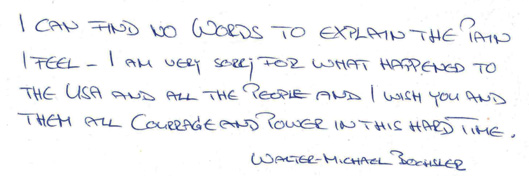 I CAN FIND NO WORDS TO EXPLAIN THE PAIN
I FEEL - I AM VERY SORRY FOR WHAT HAPPENED TO
THE USA AND ALL THE PEOPLE AND I WISH YOU AND
THEM ALL COURRAGE AND POWER IN THIS HARD TIME.
WALTER-MICHAEL